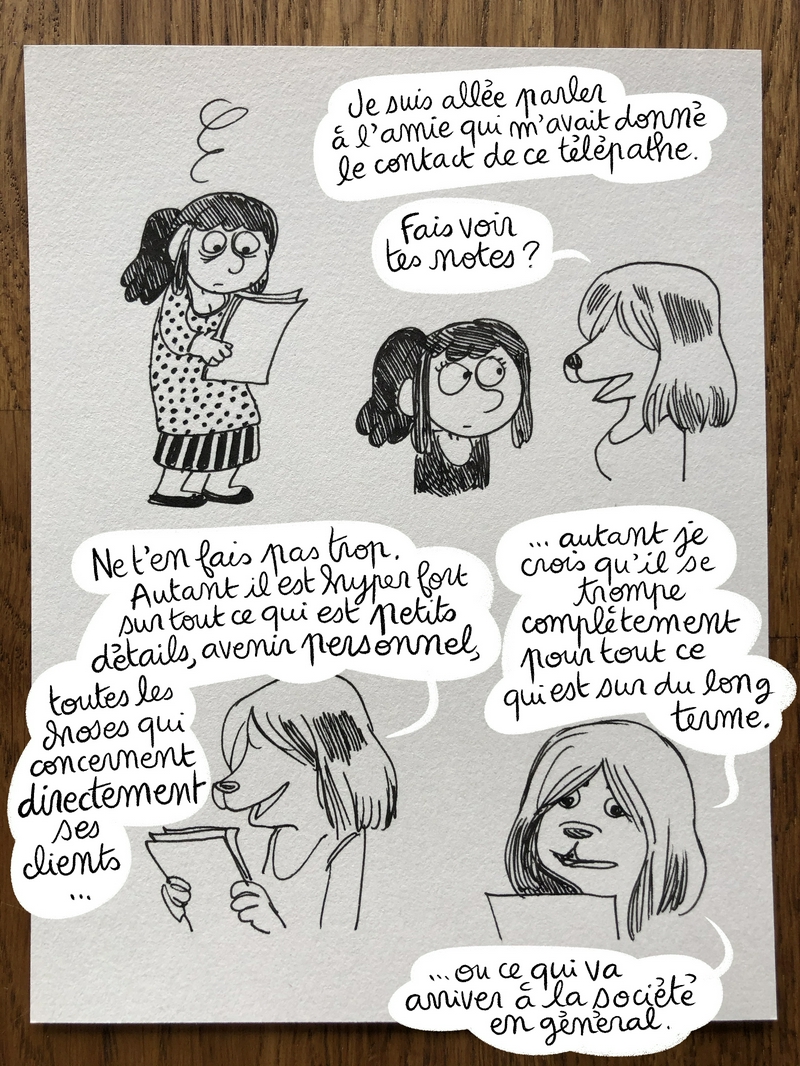 Je suis allée parler
à l'amie qui m'avait donné
le contact de ce télépathe.
Fais voir
tes notes ?
Ne t'en fais pas trop.
Autant il est hyper fort
sur tout ce qui est petits
détails, avenir personnel,
toutes les
choses qui
concernent
directement
ses
clients
...
... autant je
crois qu'il se
trompe
complètement
pour tout ce
qui est sur du long
terme.
...ou ce qui va
arriver à la société
en général.